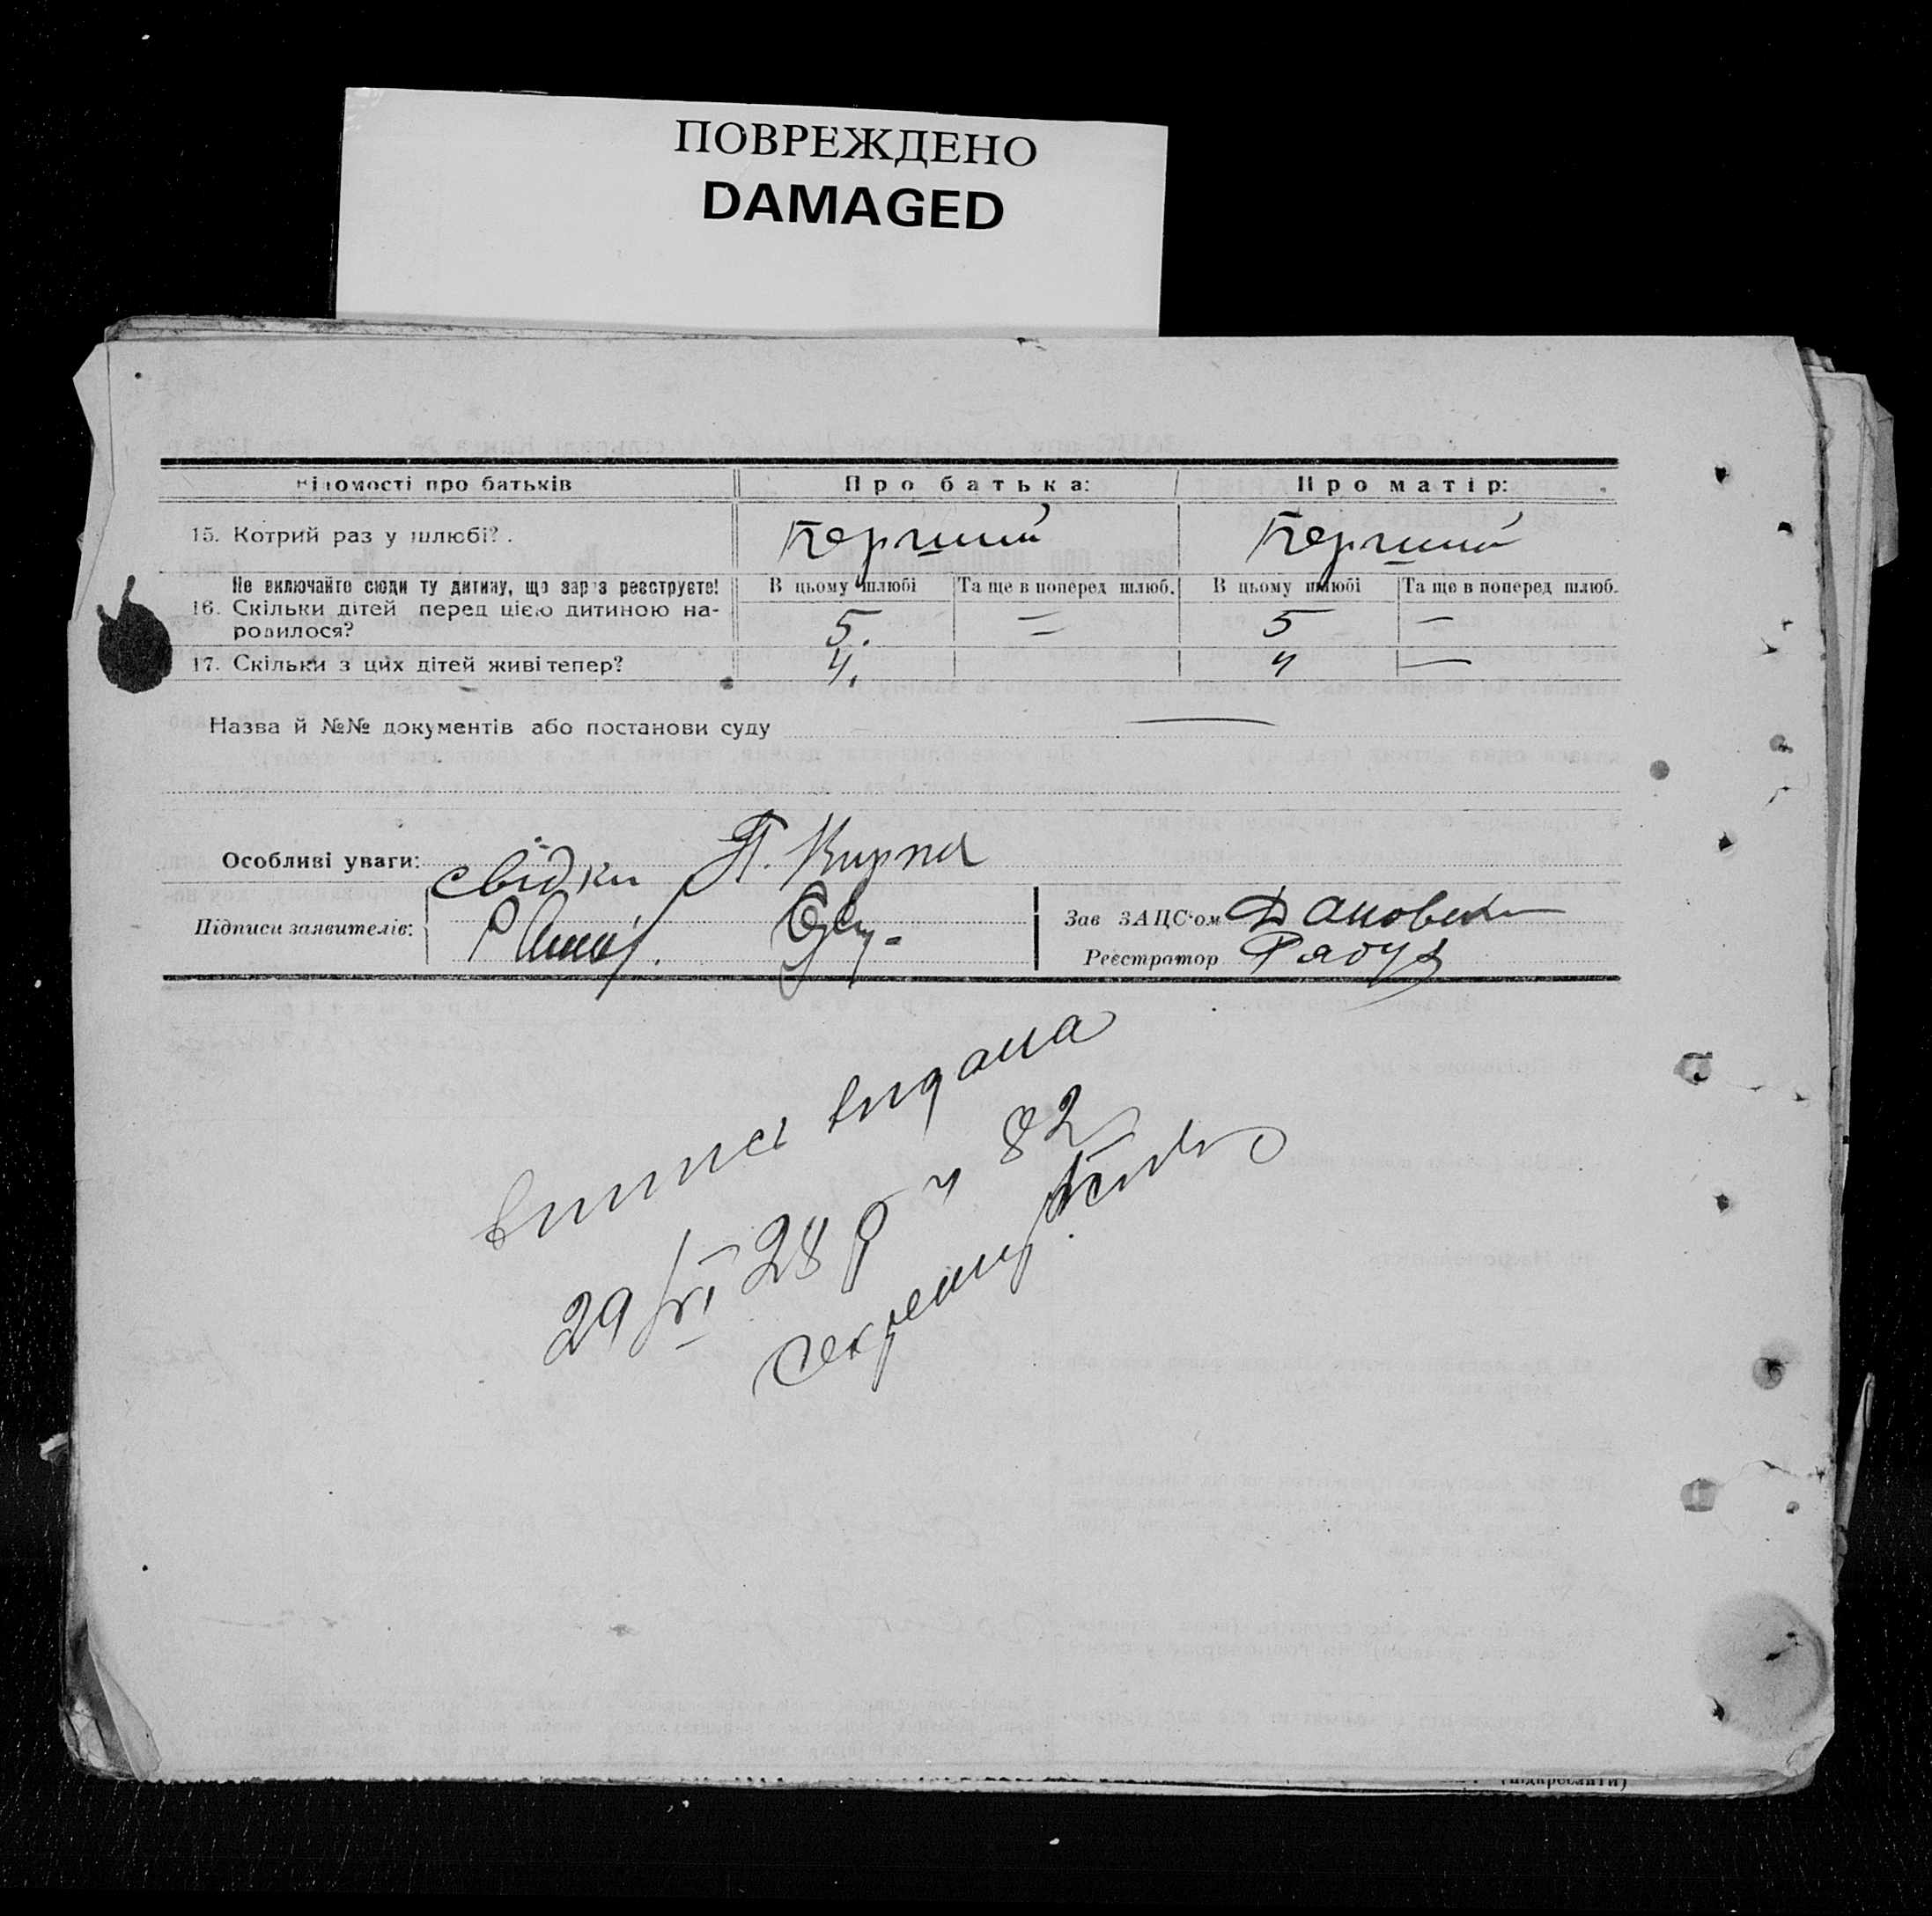 ПОВРЕЖДЕНО
DAMAGED
Відомості про батьків Про батька: Про матір:
15. Котрий раз у шлюбі? Перший Перший
Не включайте сюди ту дитину, що зараз реєструєте! В цьому шлюбі Та ще в поперед шлюб. В цьому шлюбі Та ще в поперед шлюб.
16. Скільки дітей перед цією дитиною на-
родилося? 5. = 5 —
17. Скільки з цих дітей живі тепер? 4. 4 —
Назва й №№ документів або постанови суду —
Особливі уваги: свідки П. Кирпа
Підписи заявителів:
Зав ЗАЦС'ом
Реєстратор
виписі видана
29/VI 28 р 82
секретар
(підкреслити)